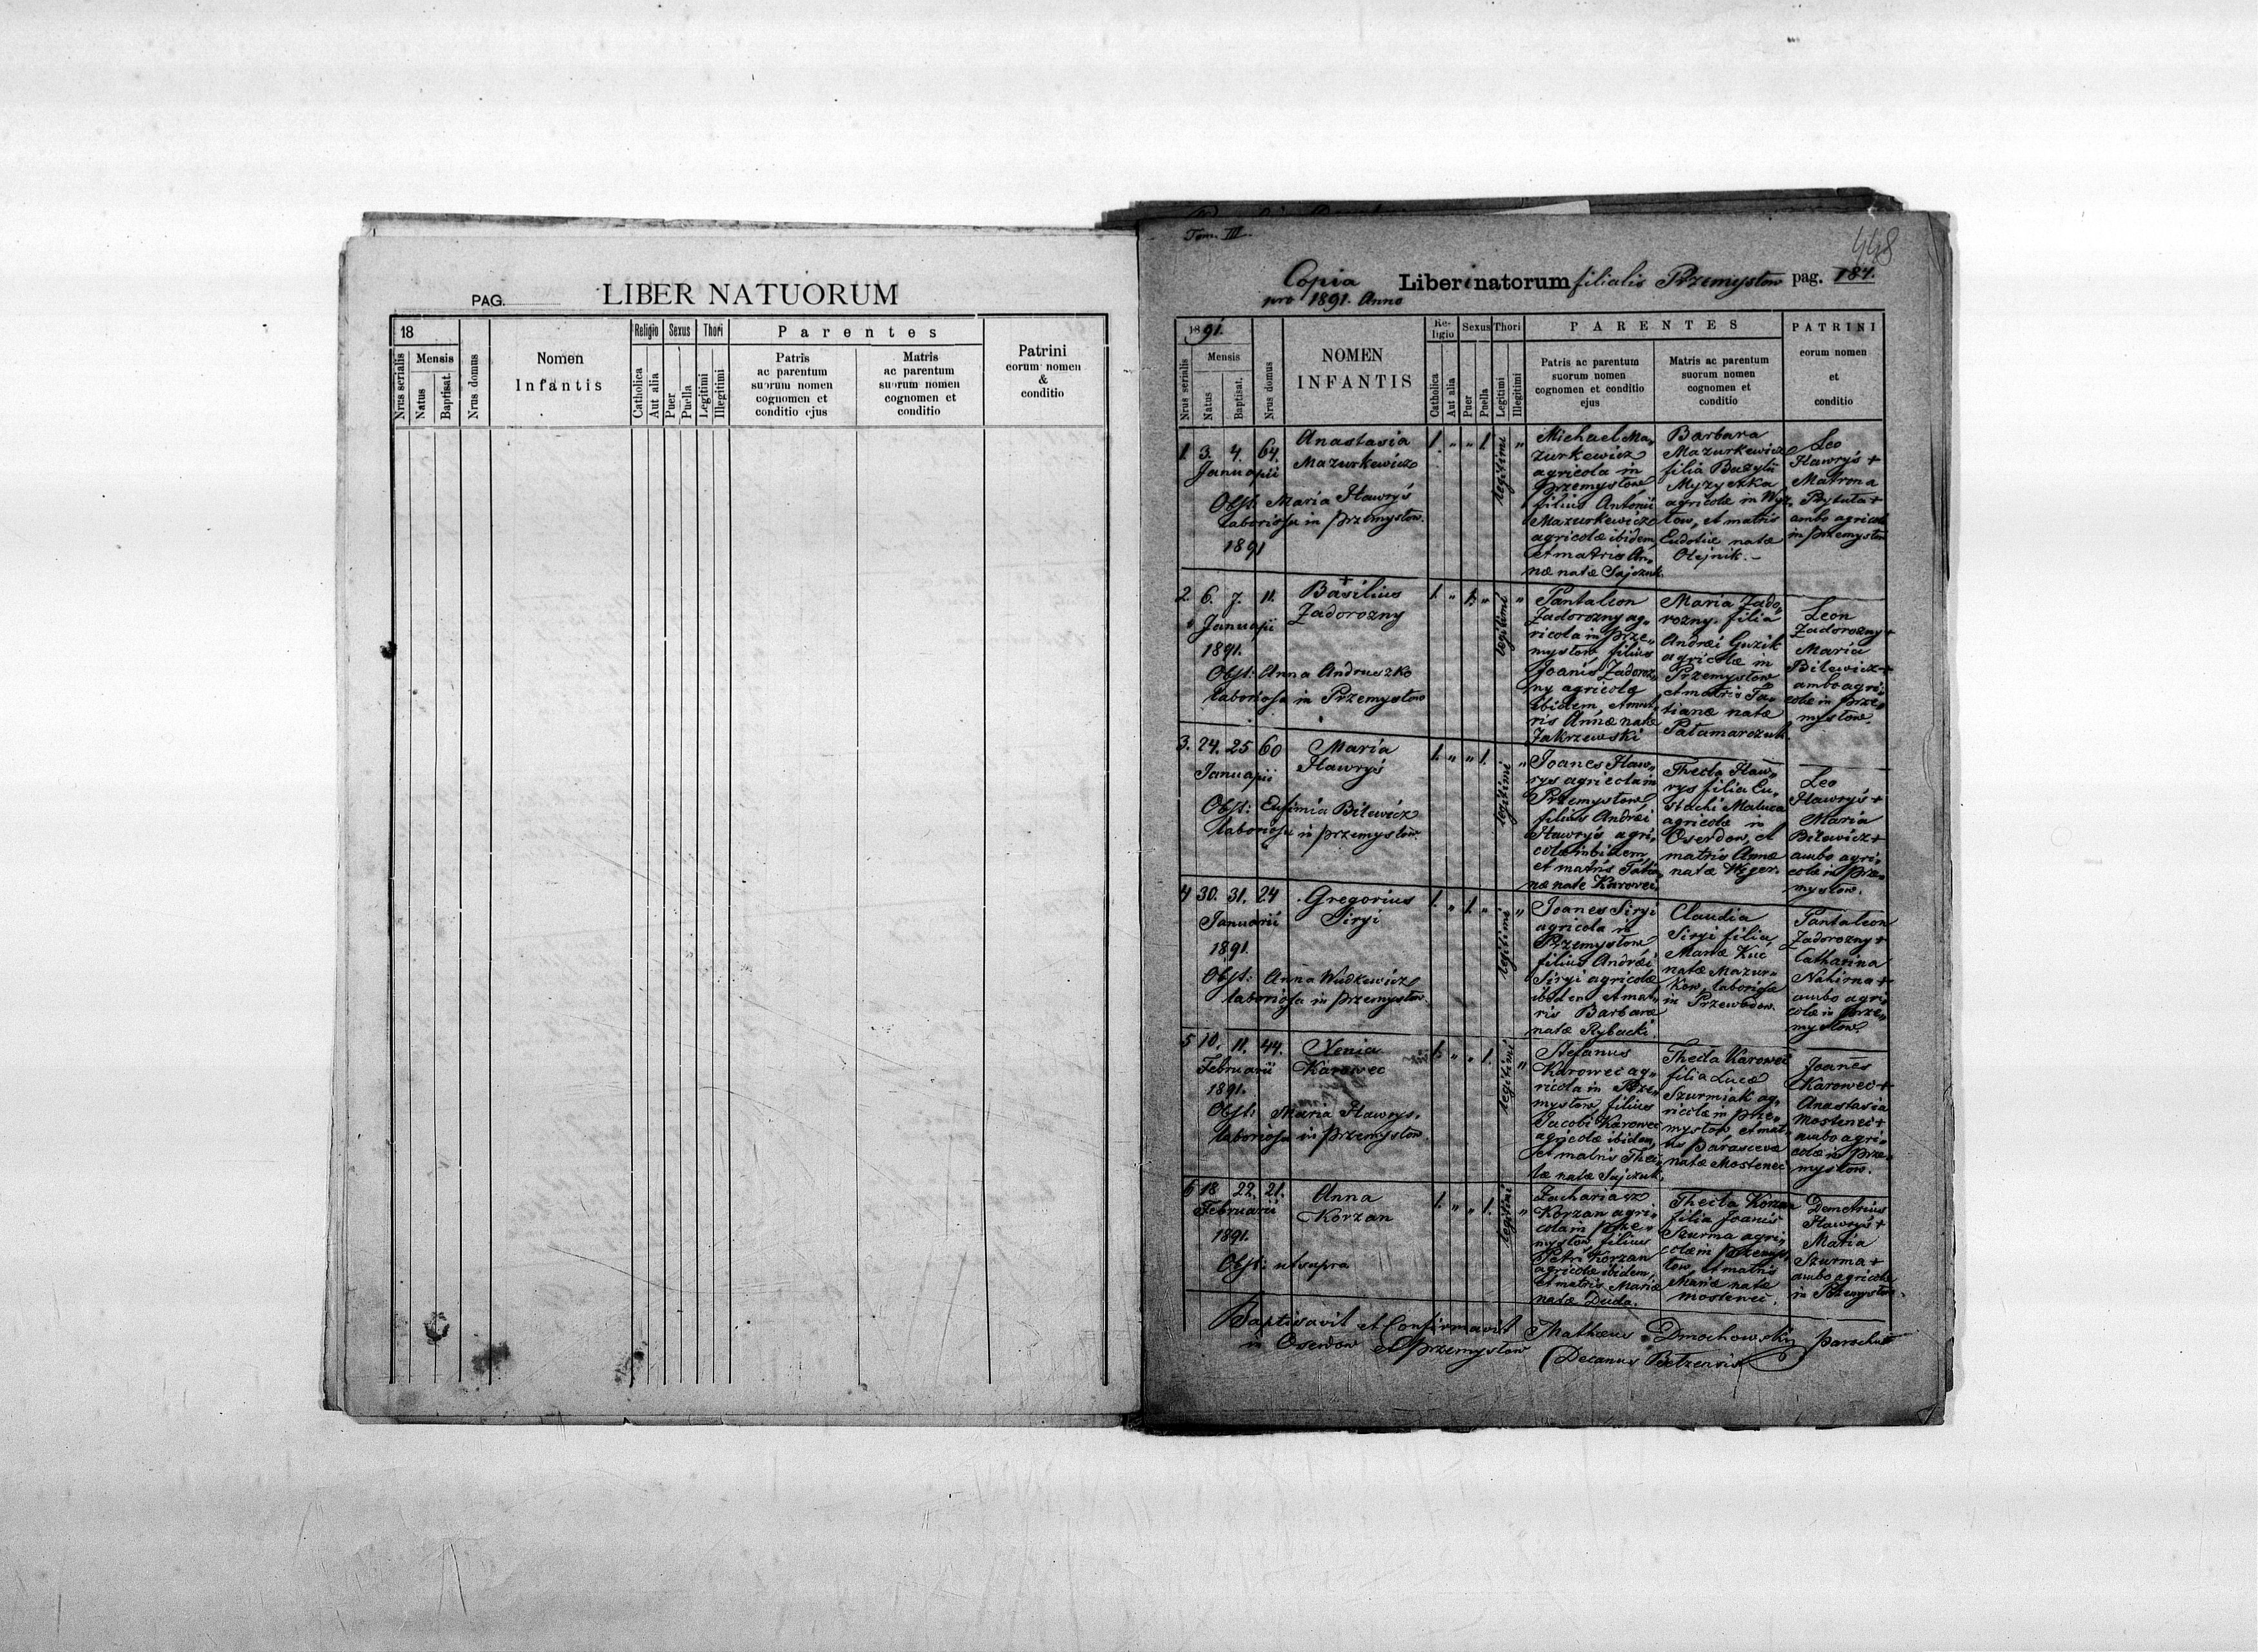 PAG.
LIBER NATUORUM
18
Nrus serialis
Mensis
Natus
Baptisat.
Nrus domus
Nomen
Infantis
Religio
Catholica
Aut alia
Sexus
Puer
Puella
Thori
Legitimi
Illegitimi
Parentes
Patris
ac parentum
suorum nomen
cognomen et
conditio ejus
Matris
ac parentum
suorum nomen
cognomen et
conditio
Patrini
eorum nomen
&
conditio
Tom. III.
448
Copia Liber natorum filialis Przemysłow pag. 187.
pro 1891. Anno
1891.
Nrus serialis
Mensis
Natus
Baptisat.
Nrus domus
NOMEN
INFANTIS
Re-
ligio
Catholica
Aut alia
Sexus
Puer
Puella
Thori
Legitimi
Illegitimi
PARENTES
Patris ac parentum
suorum nomen
cognomen et conditio
ejus
Matris ac parentum
suorum nomen
cognomen et
conditio
PATRINI
eorum nomen
et
conditio
1. 3. 4. 64.
Januarii
Anastasia
Mazurkewicz
Obst: Maria Hawryś
laboriosa in Przemysłow.
1891
1. " " 1. legitimi "
Michael Ma„
zurkewicz
agricola in
Przemysłow
filius Antonii
Mazurkewicz
agricolæ ibidem,
et matris An„
næ natæ Sajczuk.
Barbara
Mazurkewicz
filia Bazylii
agricolæ in
tow, et matris
Eudoxiæ natæ
Olejnik.-
Leo
Hawryś +
Matrona
ambo agricolæ
in Przemysłow
2. 6. 7. 11.
Januarii
1891.
+
Basilius
Zadorozny
Obst: Anna Andruszko
laboriosa in Przemysłow
1. " 1. " legitimi "
Pantaleon
Zadorozny ag„
ricola in Prze„
mysłow filius
Joanis Zadoroz„
ny agricolæ
ibidem, et mat„
ris Annæ natæ
Zakrzewski
Maria Zado„
rozny. filia
Andrei Guzik
agricolæ in
Przemysłow
et matris Ta„
tianæ natæ
Pałamarczuk.
Leon
Zadorozny +
Maria
Bilewicz +
ambo agri„
colæ in Prze„
mysłow.
3. 24. 25 60
Januarii
Maria
Hawryś
Obst: Eufimia Bilewicz
laboriosa in Przemysłow.
1. " " 1. legitimi "
Joanes Haw„
rys agricola in
Przemysłow
filius Andrei
Hawryś agri„
colæ ibidem,
et matris Tatia„
næ natæ Karowec.
Thecla Haw„
rys filia Eu„
stachi Matuca
agricolæ in
Oserdow, et
matris Annæ
natæ Węger.
Leo
Hawryś +
Maria
Bilewicz +
ambo agri„
colæ in Prze„
mysłow.
4 30. 31. 24
Januarii
1891.
Gregorius
Siryi
Obst: Anna Wudkewicz
laboriosa in Przemysłow.
1. " 1. " legitimi "
Joanes Siryi
agricola in
Przemysłow
filius Andrei
Siryi agricolæ
ibidem et mat„
ris Barbaræ
natæ Rybacki.
Claudia
Siryi filia
Mariæ Kuć
natæ Mazur„
kow, laboriosa
in Przewodow.
Pantaleon
Zadorozny +
Catharina
Nahirna +
ambo agri„
colæ in Prze„
mysłow.
5 10. 11. 44.
Februarii
1891.
Xenia
Karowec
Obst: Maria Hawrys.
laboriosa in Przemysłow.
1. " " 1. legitimi "
Stefanus
Karowec ag„
ricola in Prze„
mysłow filius
Jacobi Karowec
agricolæ ibidem,
et matris Thec„
læ natæ Sajczuk.
Thecla Karowec
filia Lucæ
Szurmiak ag„
ricolæ in Prze„
mysłow et mat„
ris Parascevæ
natæ Mostenec
Joanes
Karowec +
Anastasia
Mostenec +
ambo agri„
colæ in Prze„
mysłow.
6 18 22. 21.
Februarii
1891.
Anna
Korzan
Obst: ut supra
1. " " 1. legitimi "
Zachariasz
Korzan agri„
cola in Prze„
mysłow filius
Petri Korzan
agricolæ ibidem,
et matris Mariæ
natæ Duda.
Thecla Korzan
filia Joanis
Szurma agri„
colæ in Przemys„
łow, et matris
Mariæ natæ
Mostenec.
Demetrius
Hawryś +
Maria
Szurma +
ambo agricolæ
in Przemysłow.
Baptisavit et Confirmavit Mathæus Dmochowski parochus
in Oserdow et Przemysłow Decanus Bełzensis